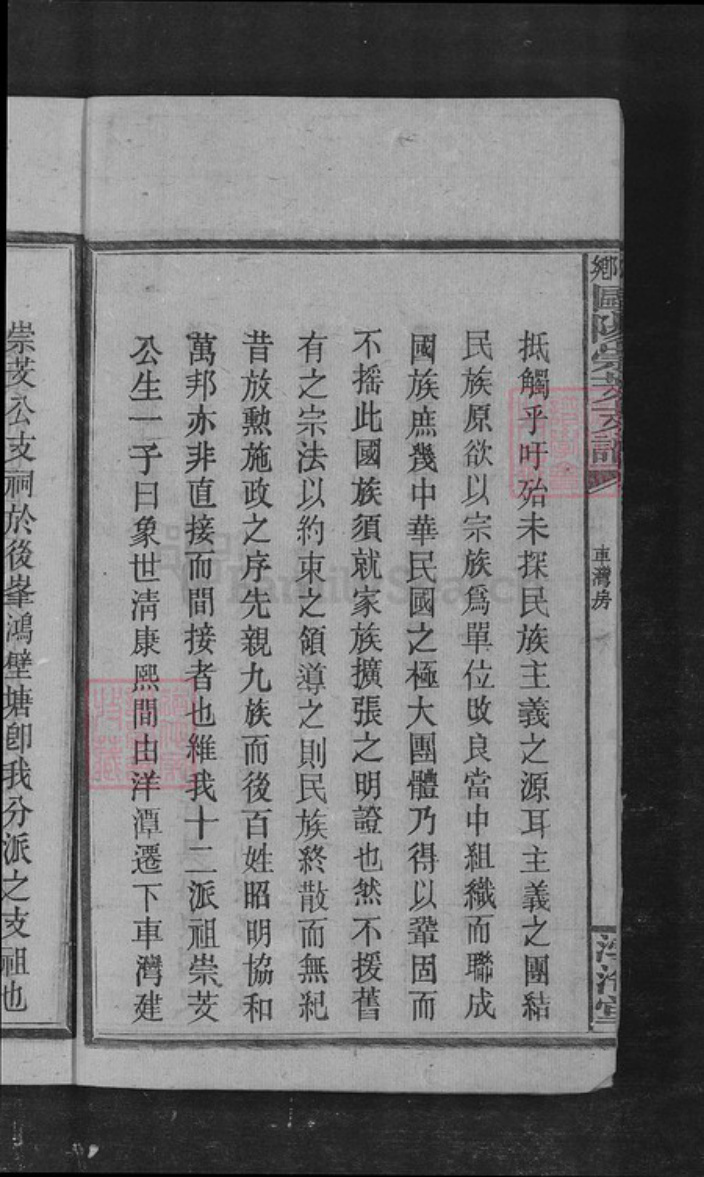 鄉歐陽崇芳支譜
車灣房
抵觸乎吁殆未探民族主義之源耳主義之團結
民族原欲以宗族爲單位改良當中組織而聯成
國族庶幾中華民國之極大團體乃得以鞏固而
不搖此國族須就家族擴張之明證也然不援舊
有之宗法以約束之領導之則民族終散而無紀
昔放勲施政之序先親九族而後百姓昭明協和
萬邦亦非直接而間接者也維我十二派祖崇芳
公生一子曰象世淸康熙間由洋潭遷下車灣建
崇芳公支祠於後峯鴻壁塘卽我分派之支祖也
FamilySearch